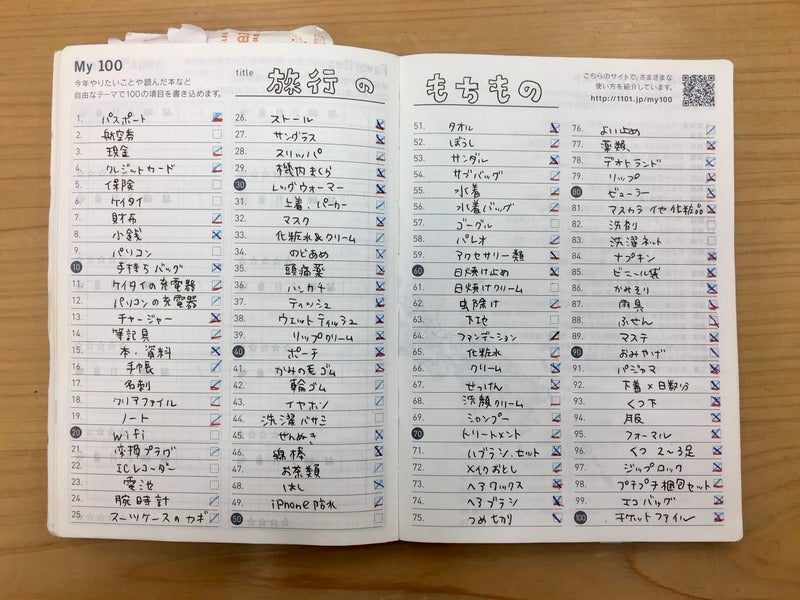 My 100
今年やりたいことや読んだ本など
自由なテーマで100の項目を書き込めます。
title 旅行の
1. パスポート
2. 航空券
3. 現金
4. クレジットカード
5. 保険
6. ケイタイ
7. 財布
8. 小銭
9. パソコン
10 手持ちバッグ
11. ケイタイの充電器
12. パソコンの充電器
13. チャージャー
14. 筆記具
15. 本・資料
16. 手帳
17. 名刺
18. クリアファイル
19. ノート
20 wifi
21. 変換プラグ
22. ICレコーダー
23. 電池
24. 腕時計
25. スーツケースのカギ
26. ストール
27. サングラス
28. スリッパ
29. 機内まくら
30 レッグウォーマー
31. 上着、パーカー
32. マスク
33. 化粧水&クリーム
34. のどあめ
35. 頭痛薬
36. ハンカチ
37. ティッシュ
38. ウェットティッシュ
39. リップクリーム
40 ポーチ
41. かみの毛ゴム
42. 輪ゴム
43. イヤホン
44. 洗濯バサミ
45. せんぬき
46. 綿棒
47. お茶類
48. はし
49. iPhone防水
50
もちもの
こちらのサイトで、さまざまな
使い方を紹介しています。
http://1101.jp/my100
51. タオル
52. ぼうし
53. サンダル
54. サブバッグ
55. 水着
56. 水着バッグ
57. ゴーグル
58. パレオ
59. アクセサリー類
60 日焼け止め
61. 日焼けクリーム
62. 虫除け
63. 下地
64. ファンデーション
65. 化粧水
66. クリーム
67. せっけん
68. 洗顔クリーム
69. シャンプー
70 トリートメント
71. ハブラシ.セット
72. メイクおとし
73. ヘアワックス
74. ヘアブラシ
75. つめ切り
76. よい止め
77. 薬類
78. デオトランド
79. リップ
80 ビューラー
81. マスカラ他化粧品
82. 洗剤
83. 洗濯ネット
84. ナプキン
85. ビニール袋
86. かみそり
87. 雨具
88. ふせん
89. マステ
90 おみやげ
91. パジャマ
92. 下着×日数分
93. くつ下
94. 服
95. フォーマル
96. くつ 2〜3足
97. ジップロック
98. プチプチ梱包セット
99. エコバッグ
100 チケットファイル